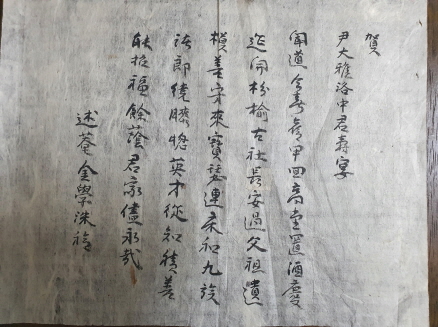 賀
尹大雅洛中君壽宴
聞道今春壽甲回高堂置酒慶
筵開枌榆古社長安過父祖遺
模善守來寶瑟連柔和九族
諸郎繞膝總英才從知積善
能投福餘蔭君家儘永哉
述菴金學洙稿